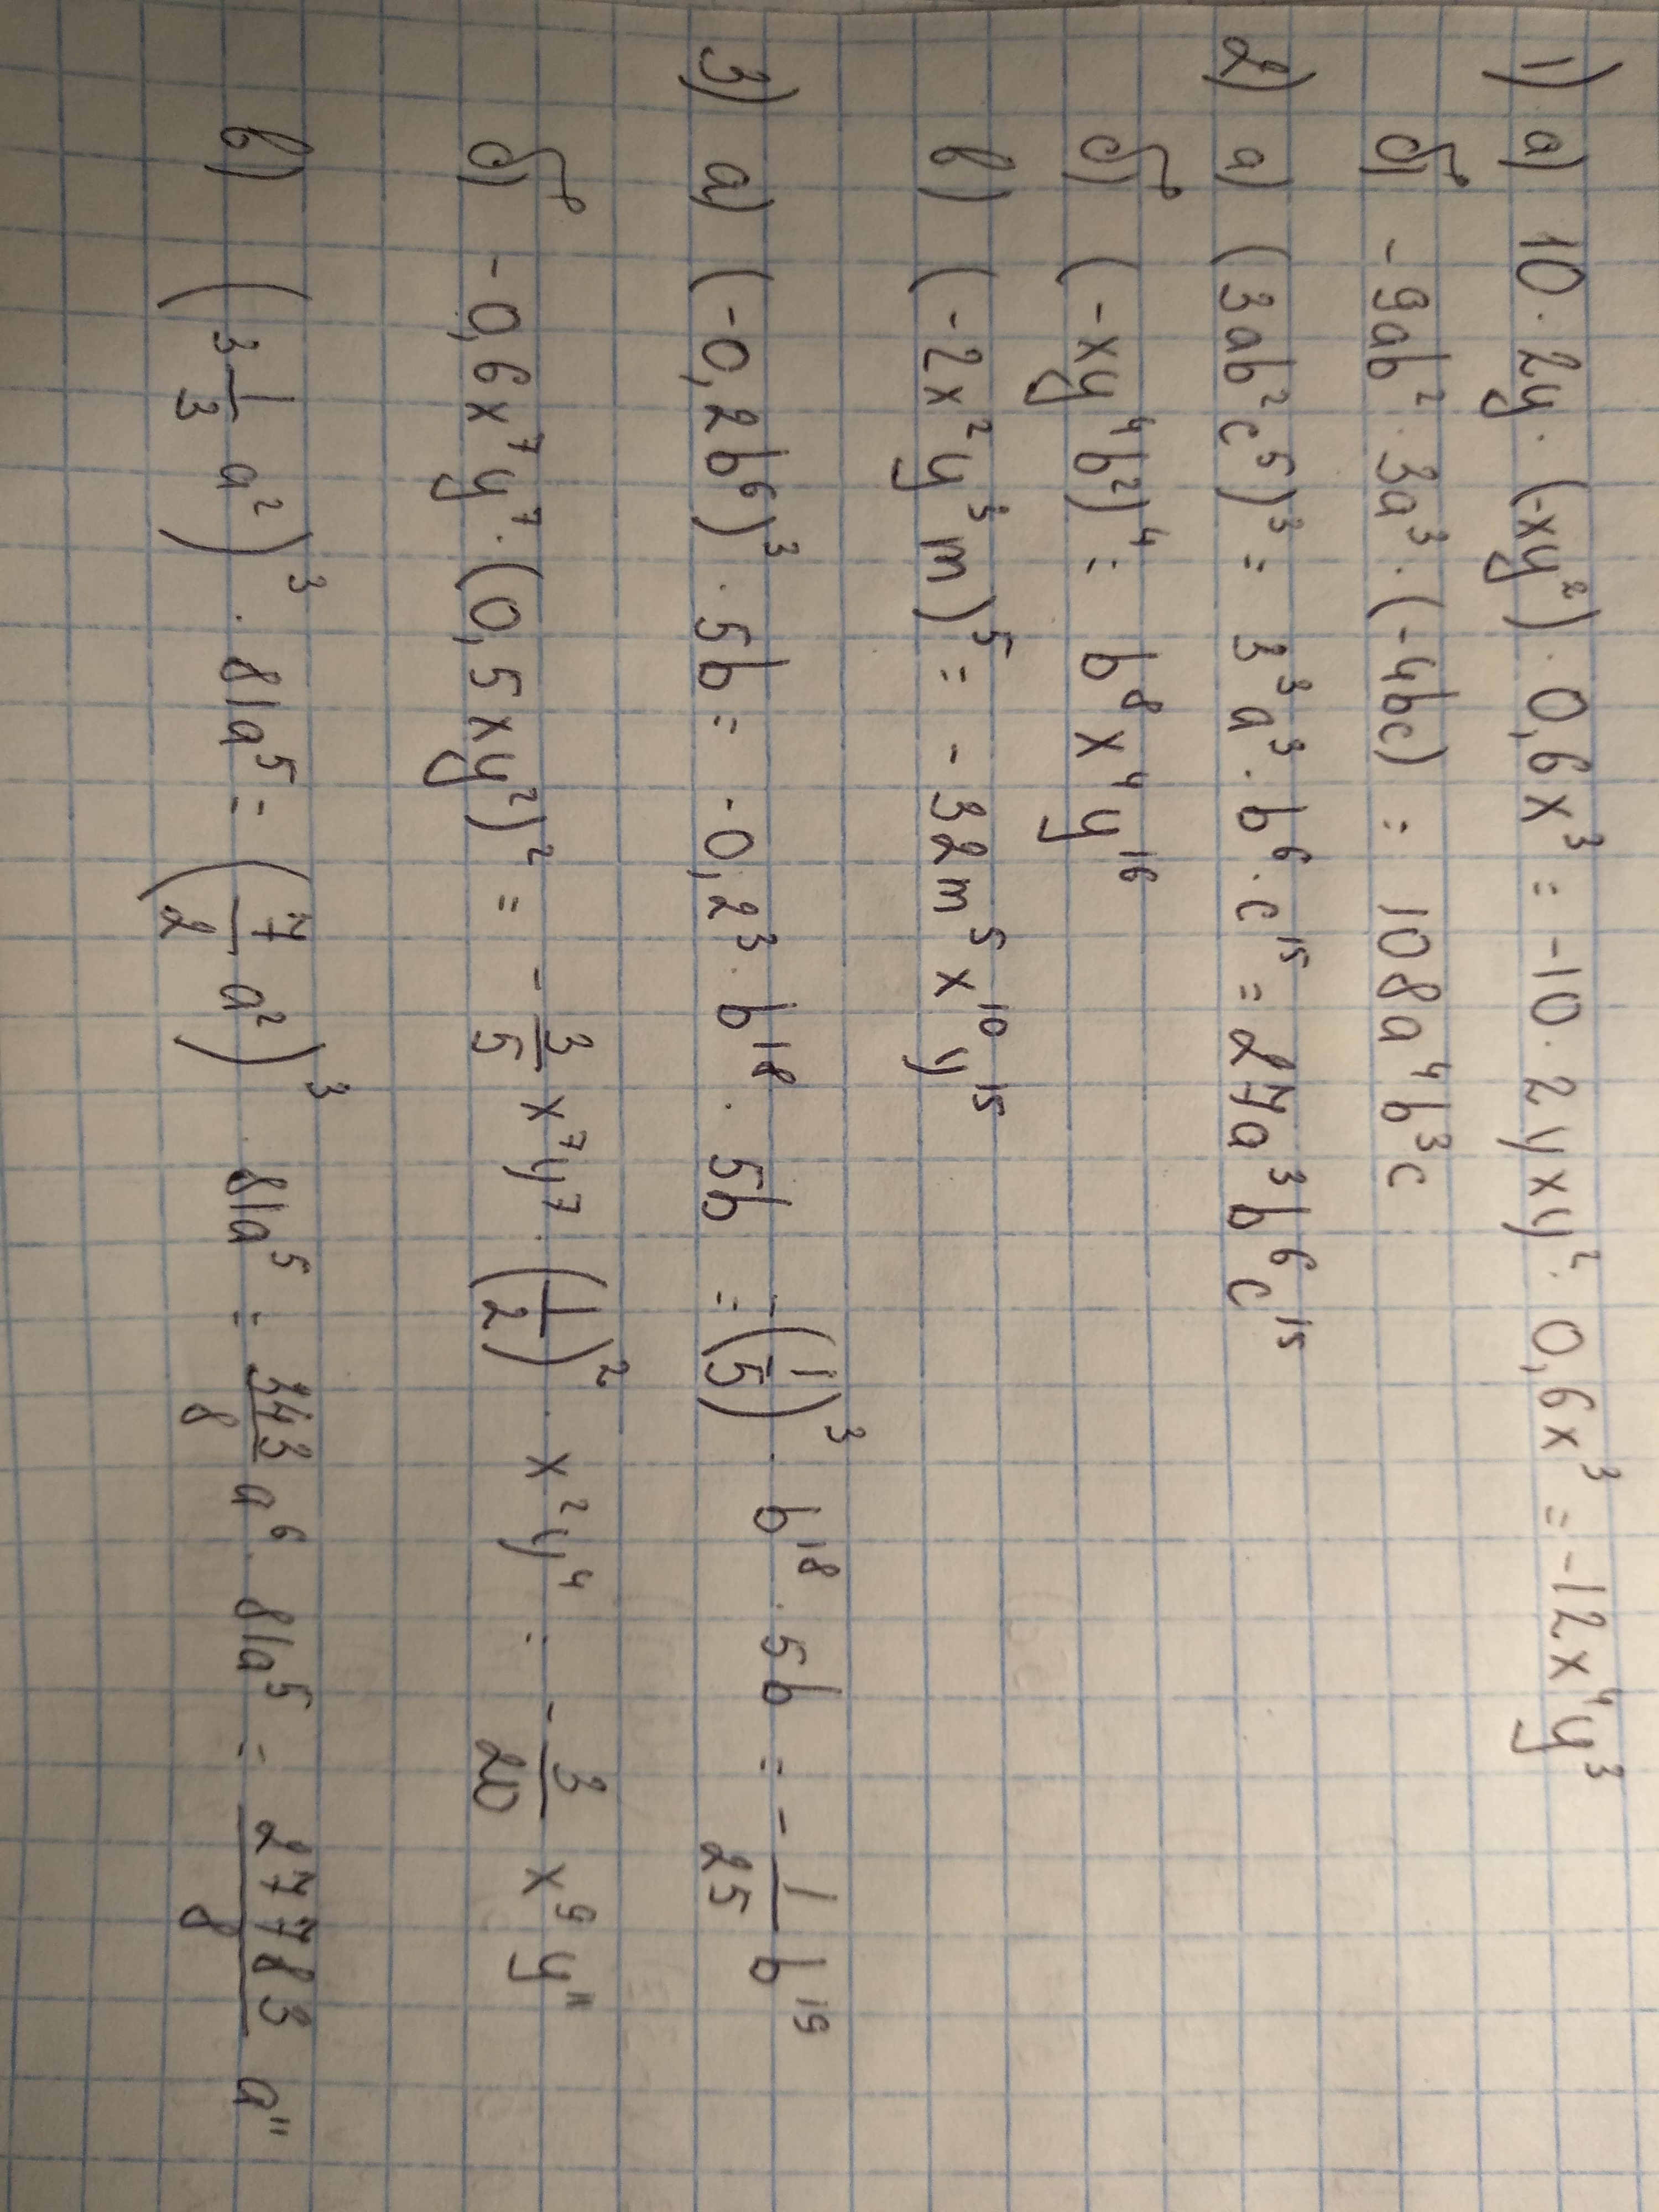 1) а) 10 · 2y · (-xy²) · 0,6x³ = -10 · 2yxy² · 0,6x³ = -12x⁴y³
б) -9ab² · 3a³ · (-4bc) = 108a⁴b³c
2) а) (3ab²c⁵)³ = 3³a³ · b⁶ · c¹⁵ = 27a³b⁶c¹⁵
б) (-xy⁴b²)⁴ = b⁸x⁴y¹⁶
в) (-2x²y³m)⁵ = -32m⁵x¹⁰y¹⁵
3) а) (-0,2b⁶)³ · 5b = -0,2³ · b¹⁸ · 5b = -(1/5)³ · b¹⁸ · 5b = -1/25 b¹⁹
б) -0,6x⁷y⁷ · (0,5xy²)² = -3/5 x⁷y⁷ · (1/2)² · x²y⁴ = -3/20 x⁹y¹¹
в) (3 1/3 a²)³ · 81a⁵ = (7/2 a²)³ · 81a⁵ = 343/8 a⁶ · 81a⁵ = 27783/8 a¹¹